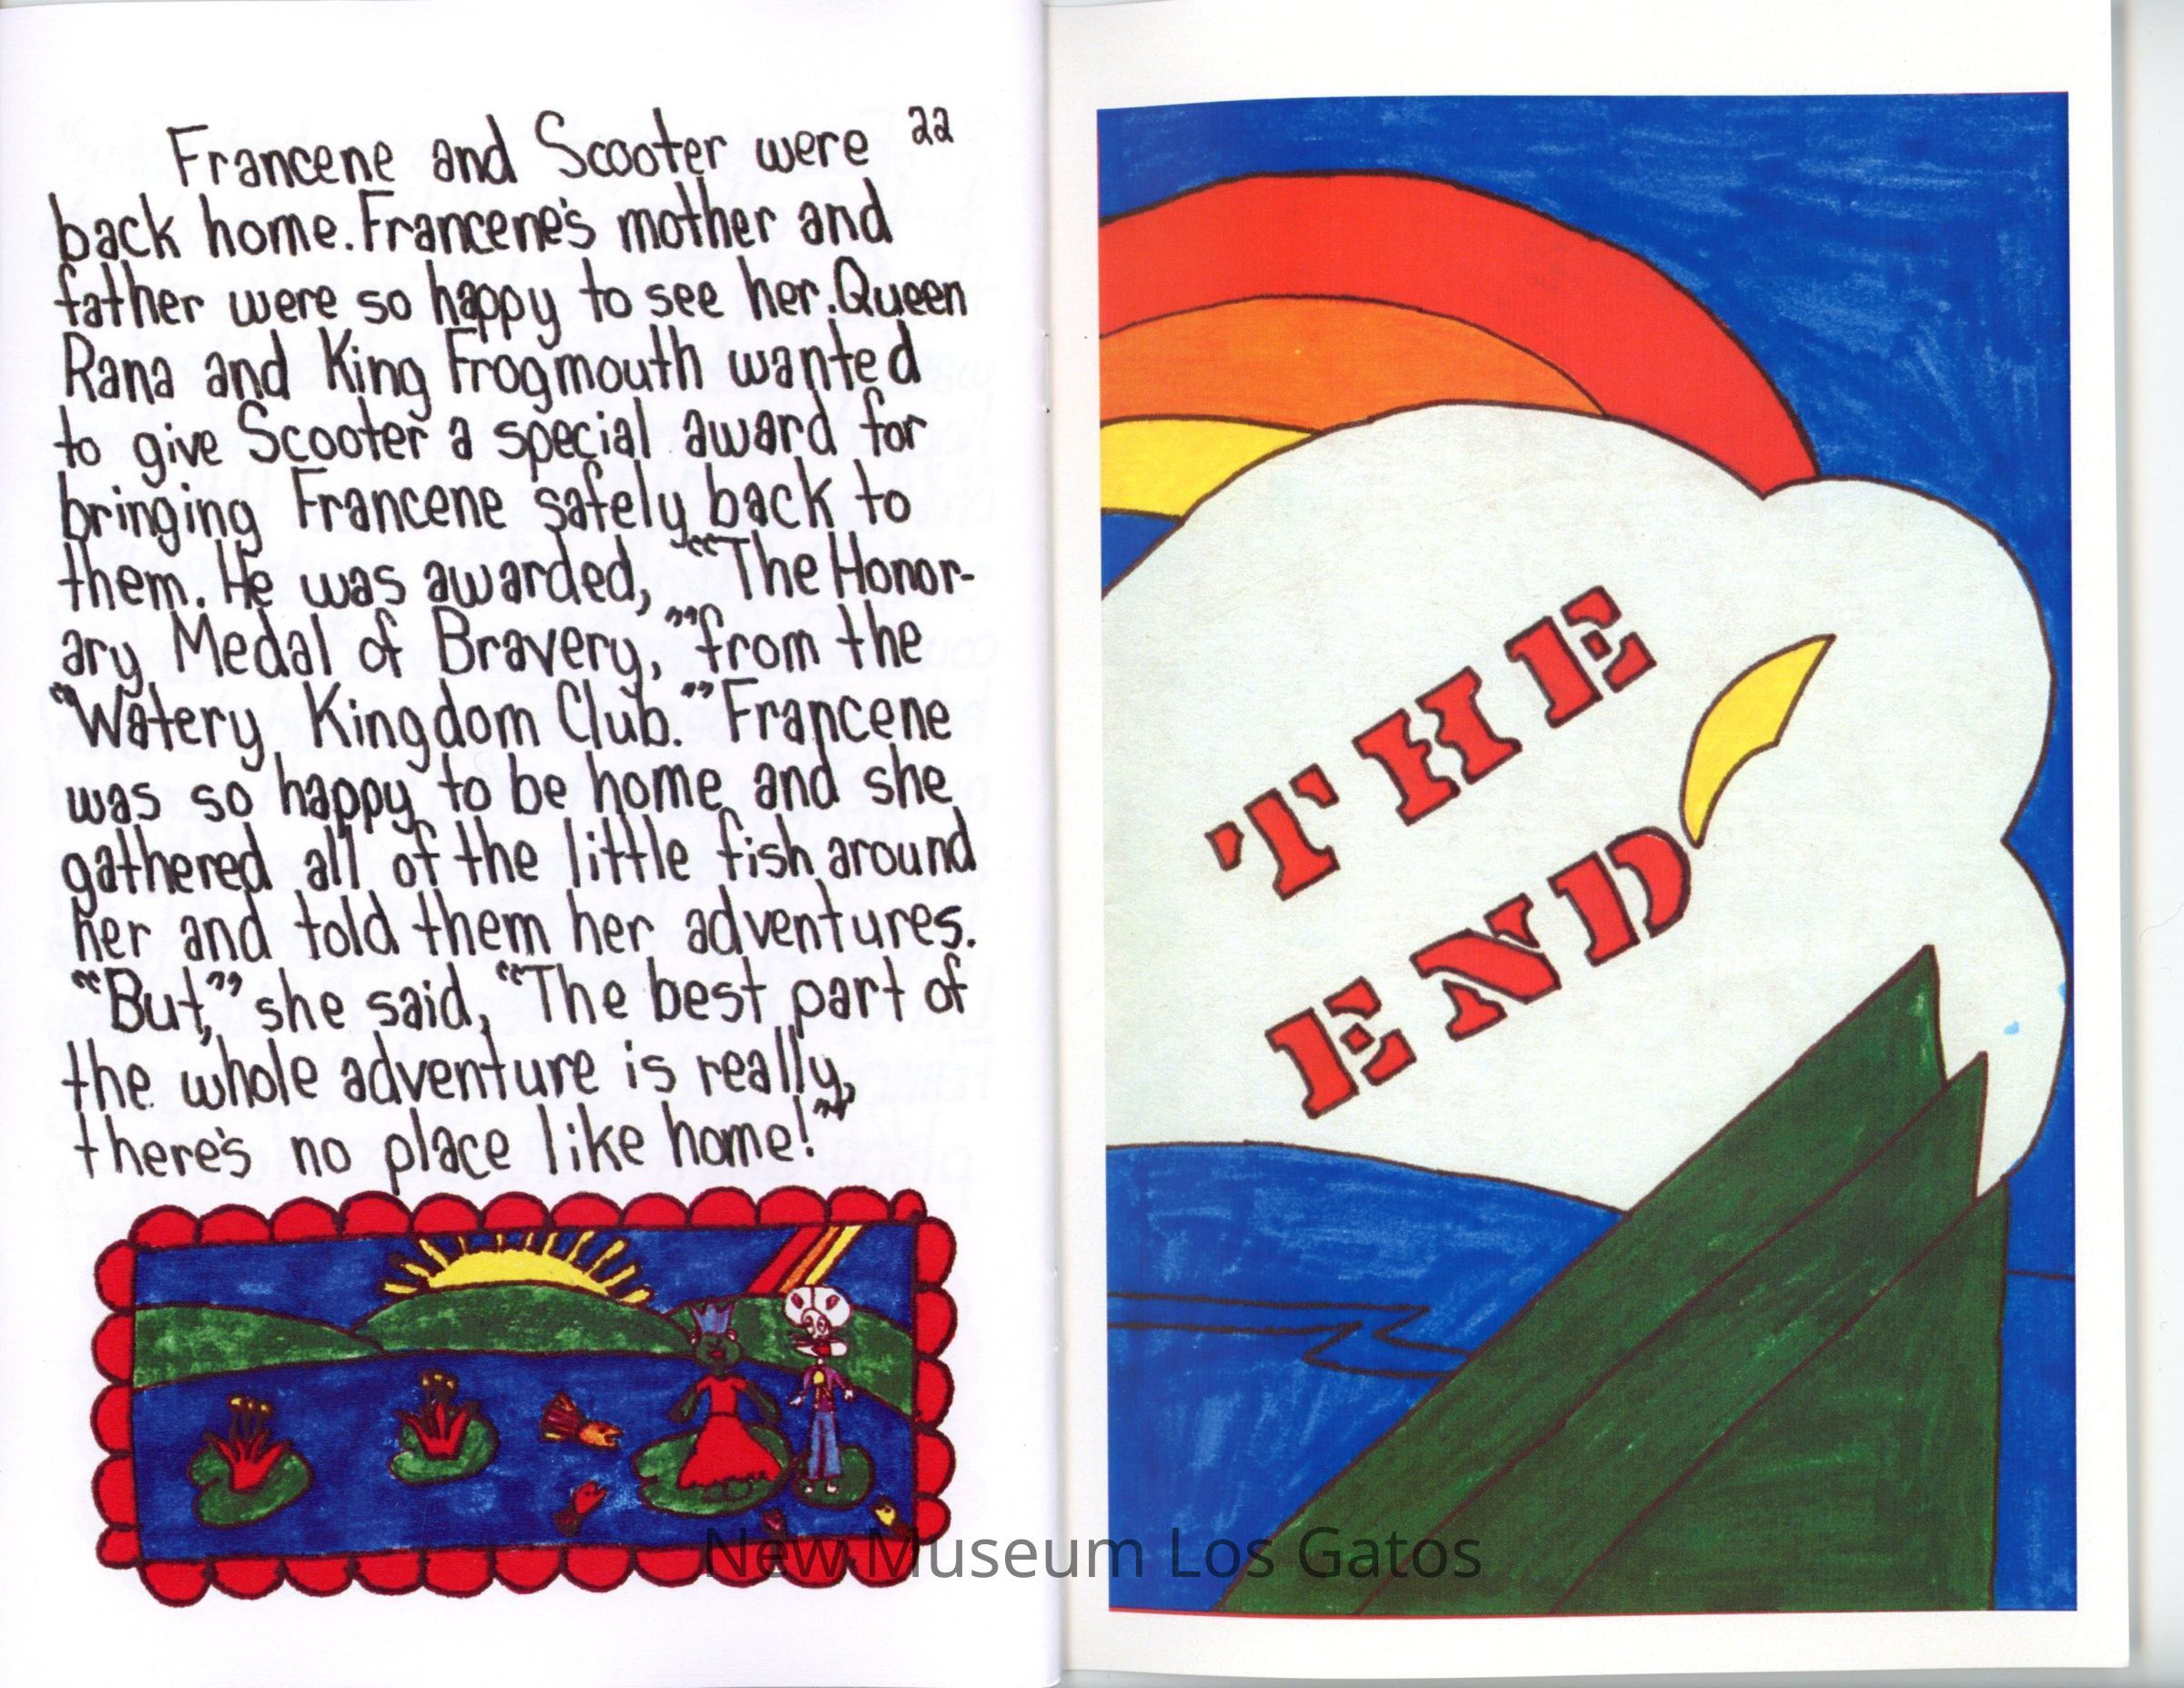 22
Francene and Scooter were
back home. Francene's mother and
father were so happy to see her. Queen
Rana and King Frogmouth wanted
to give Scooter a special award for
bringing Francene safely back to
them. He was awarded, "The Honor-
ary Medal of Bravery," from the
"Watery Kingdom Club." Francene
was so happy to be home and she
gathered all of the little fish around
her and told them her adventures.
"But," she said, "The best part of
the whole adventure is really,
there's no place like home!"
THE
END
New Museum Los Gatos